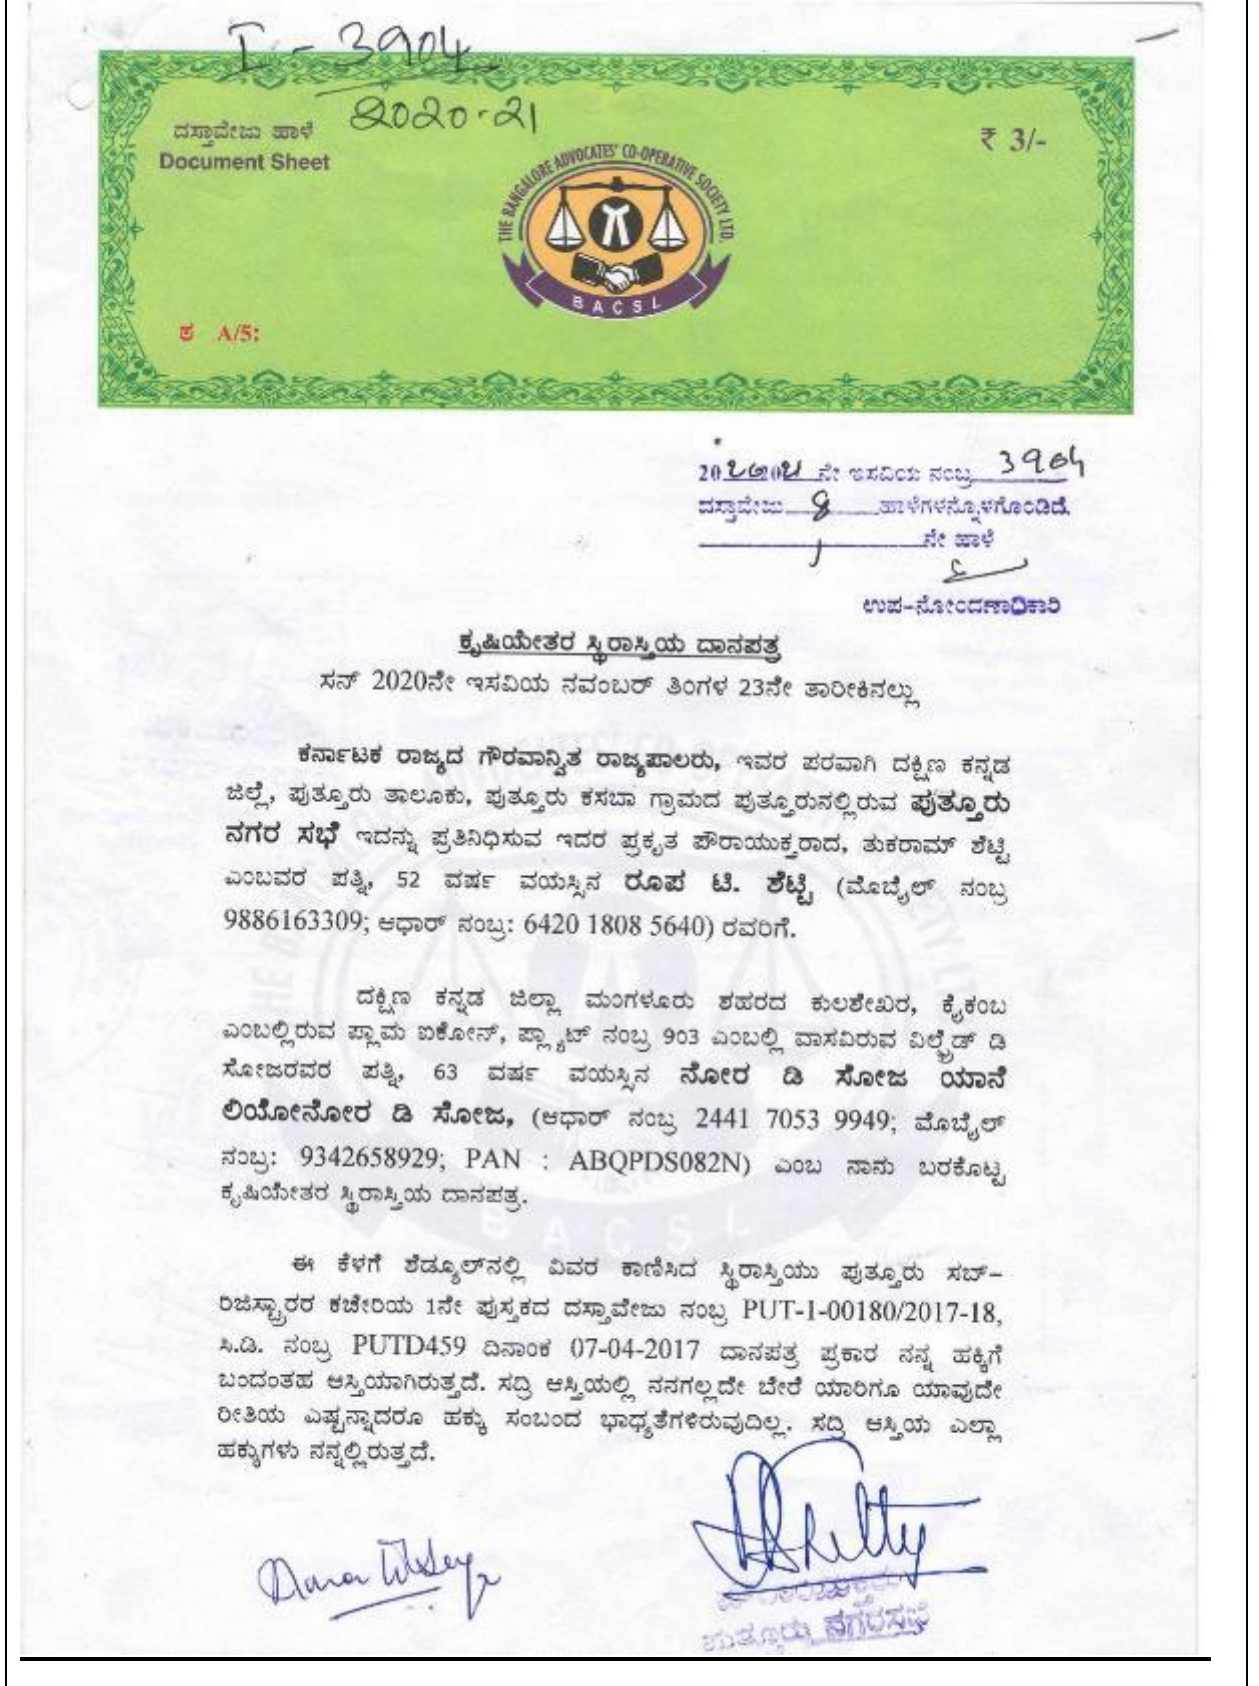 I - 3904
2020-21
ದಸ್ತಾವೇಜು ಹಾಳೆ
Document Sheet
₹ 3/-
THE BANGALORE ADVOCATES' CO-OPERATIVE SOCIETY LTD.
BACSL
ಠ A/5:
ನೇ ಇಸವಿಯ ನಂಬ್ರ 3904
ದಸ್ತಾವೇಜು 8 ಹಾಳೆಗಳನ್ನೊಳಗೊಂಡಿದೆ.
1 ನೇ ಹಾಳೆ
ಉಪ-ನೋಂದಣಾಧಿಕಾರಿ
ಕೃಷಿಯೇತರ ಸ್ಥಿರಾಸ್ತಿಯ ದಾನಪತ್ರ
ಸನ್ 2020ನೇ ಇಸವಿಯ ನವಂಬರ್ ತಿಂಗಳ 23ನೇ ತಾರೀಕಿನಲ್ಲು
ಕರ್ನಾಟಕ ರಾಜ್ಯದ ಗೌರವಾನ್ವಿತ ರಾಜ್ಯಪಾಲರು, ಇವರ ಪರವಾಗಿ ದಕ್ಷಿಣ ಕನ್ನಡ
ಜಿಲ್ಲೆ, ಪುತ್ತೂರು ತಾಲೂಕು, ಪುತ್ತೂರು ಕಸಬಾ ಗ್ರಾಮದ ಪುತ್ತೂರುನಲ್ಲಿರುವ ಪುತ್ತೂರು
ನಗರ ಸಭೆ ಇದನ್ನು ಪ್ರತಿನಿಧಿಸುವ ಇದರ ಪ್ರಕೃತ ಪೌರಾಯುಕ್ತರಾದ, ತುಕರಾಮ್ ಶೆಟ್ಟಿ
ಎಂಬವರ ಪತ್ನಿ, 52 ವರ್ಷ ವಯಸ್ಸಿನ ರೂಪ ಟಿ. ಶೆಟ್ಟಿ (ಮೊಬೈಲ್ ನಂಬ್ರ
9886163309; ಆಧಾರ್ ನಂಬ್ರ: 6420 1808 5640) ರವರಿಗೆ.
ದಕ್ಷಿಣ ಕನ್ನಡ ಜಿಲ್ಲಾ ಮಂಗಳೂರು ಶಹರದ ಕುಲಶೇಖರ, ಕೈಕಂಬ
ಎಂಬಲ್ಲಿರುವ ಪ್ಲಾಮ ಐಕೋನ್, ಪ್ಲ್ಯಾಟ್ ನಂಬ್ರ 903 ಎಂಬಲ್ಲಿ ವಾಸವಿರುವ ವಿಲ್ಫ್ರೆಡ್ ಡಿ
ಸೋಜರವರ ಪತ್ನಿ, 63 ವರ್ಷ ವಯಸ್ಸಿನ ನೋರ ಡಿ ಸೋಜ ಯಾನೆ
ಲಿಯೋನೋರ ಡಿ ಸೋಜ, (ಆಧಾರ್ ನಂಬ್ರ 2441 7053 9949; ಮೊಬೈಲ್
ನಂಬ್ರ: 9342658929; PAN : ABQPDS082N) ಎಂಬ ನಾನು ಬರಕೊಟ್ಟ
ಕೃಷಿಯೇತರ ಸ್ಥಿರಾಸ್ತಿಯ ದಾನಪತ್ರ.
ಈ ಕೆಳಗೆ ಶೆಡ್ಯೂಲ್‌ನಲ್ಲಿ ವಿವರ ಕಾಣಿಸಿದ ಸ್ಥಿರಾಸ್ತಿಯು ಪುತ್ತೂರು ಸಬ್-
ರಿಜಿಸ್ಟ್ರಾರರ ಕಚೇರಿಯ 1ನೇ ಪುಸ್ತಕದ ದಸ್ತಾವೇಜು ನಂಬ್ರ PUT-1-00180/2017-18,
ಸಿ.ಡಿ. ನಂಬ್ರ PUTD459 ದಿನಾಂಕ 07-04-2017 ದಾನಪತ್ರ ಪ್ರಕಾರ ನನ್ನ ಹಕ್ಕಿಗೆ
ಬಂದಂತಹ ಆಸ್ತಿಯಾಗಿರುತ್ತದೆ. ಸದ್ರಿ ಆಸ್ತಿಯಲ್ಲಿ ನನಗಲ್ಲದೇ ಬೇರೆ ಯಾರಿಗೂ ಯಾವುದೇ
ರೀತಿಯ ಎಷ್ಟನ್ನಾದರೂ ಹಕ್ಕು ಸಂಬಂದ ಭಾಧ್ಯತೆಗಳಿರುವುದಿಲ್ಲ. ಸದ್ರಿ ಆಸ್ತಿಯ ಎಲ್ಲಾ
ಹಕ್ಕುಗಳು ನನ್ನಲ್ಲಿರುತ್ತದೆ.
ಪುತ್ತೂರು ನಗರಸಭೆ